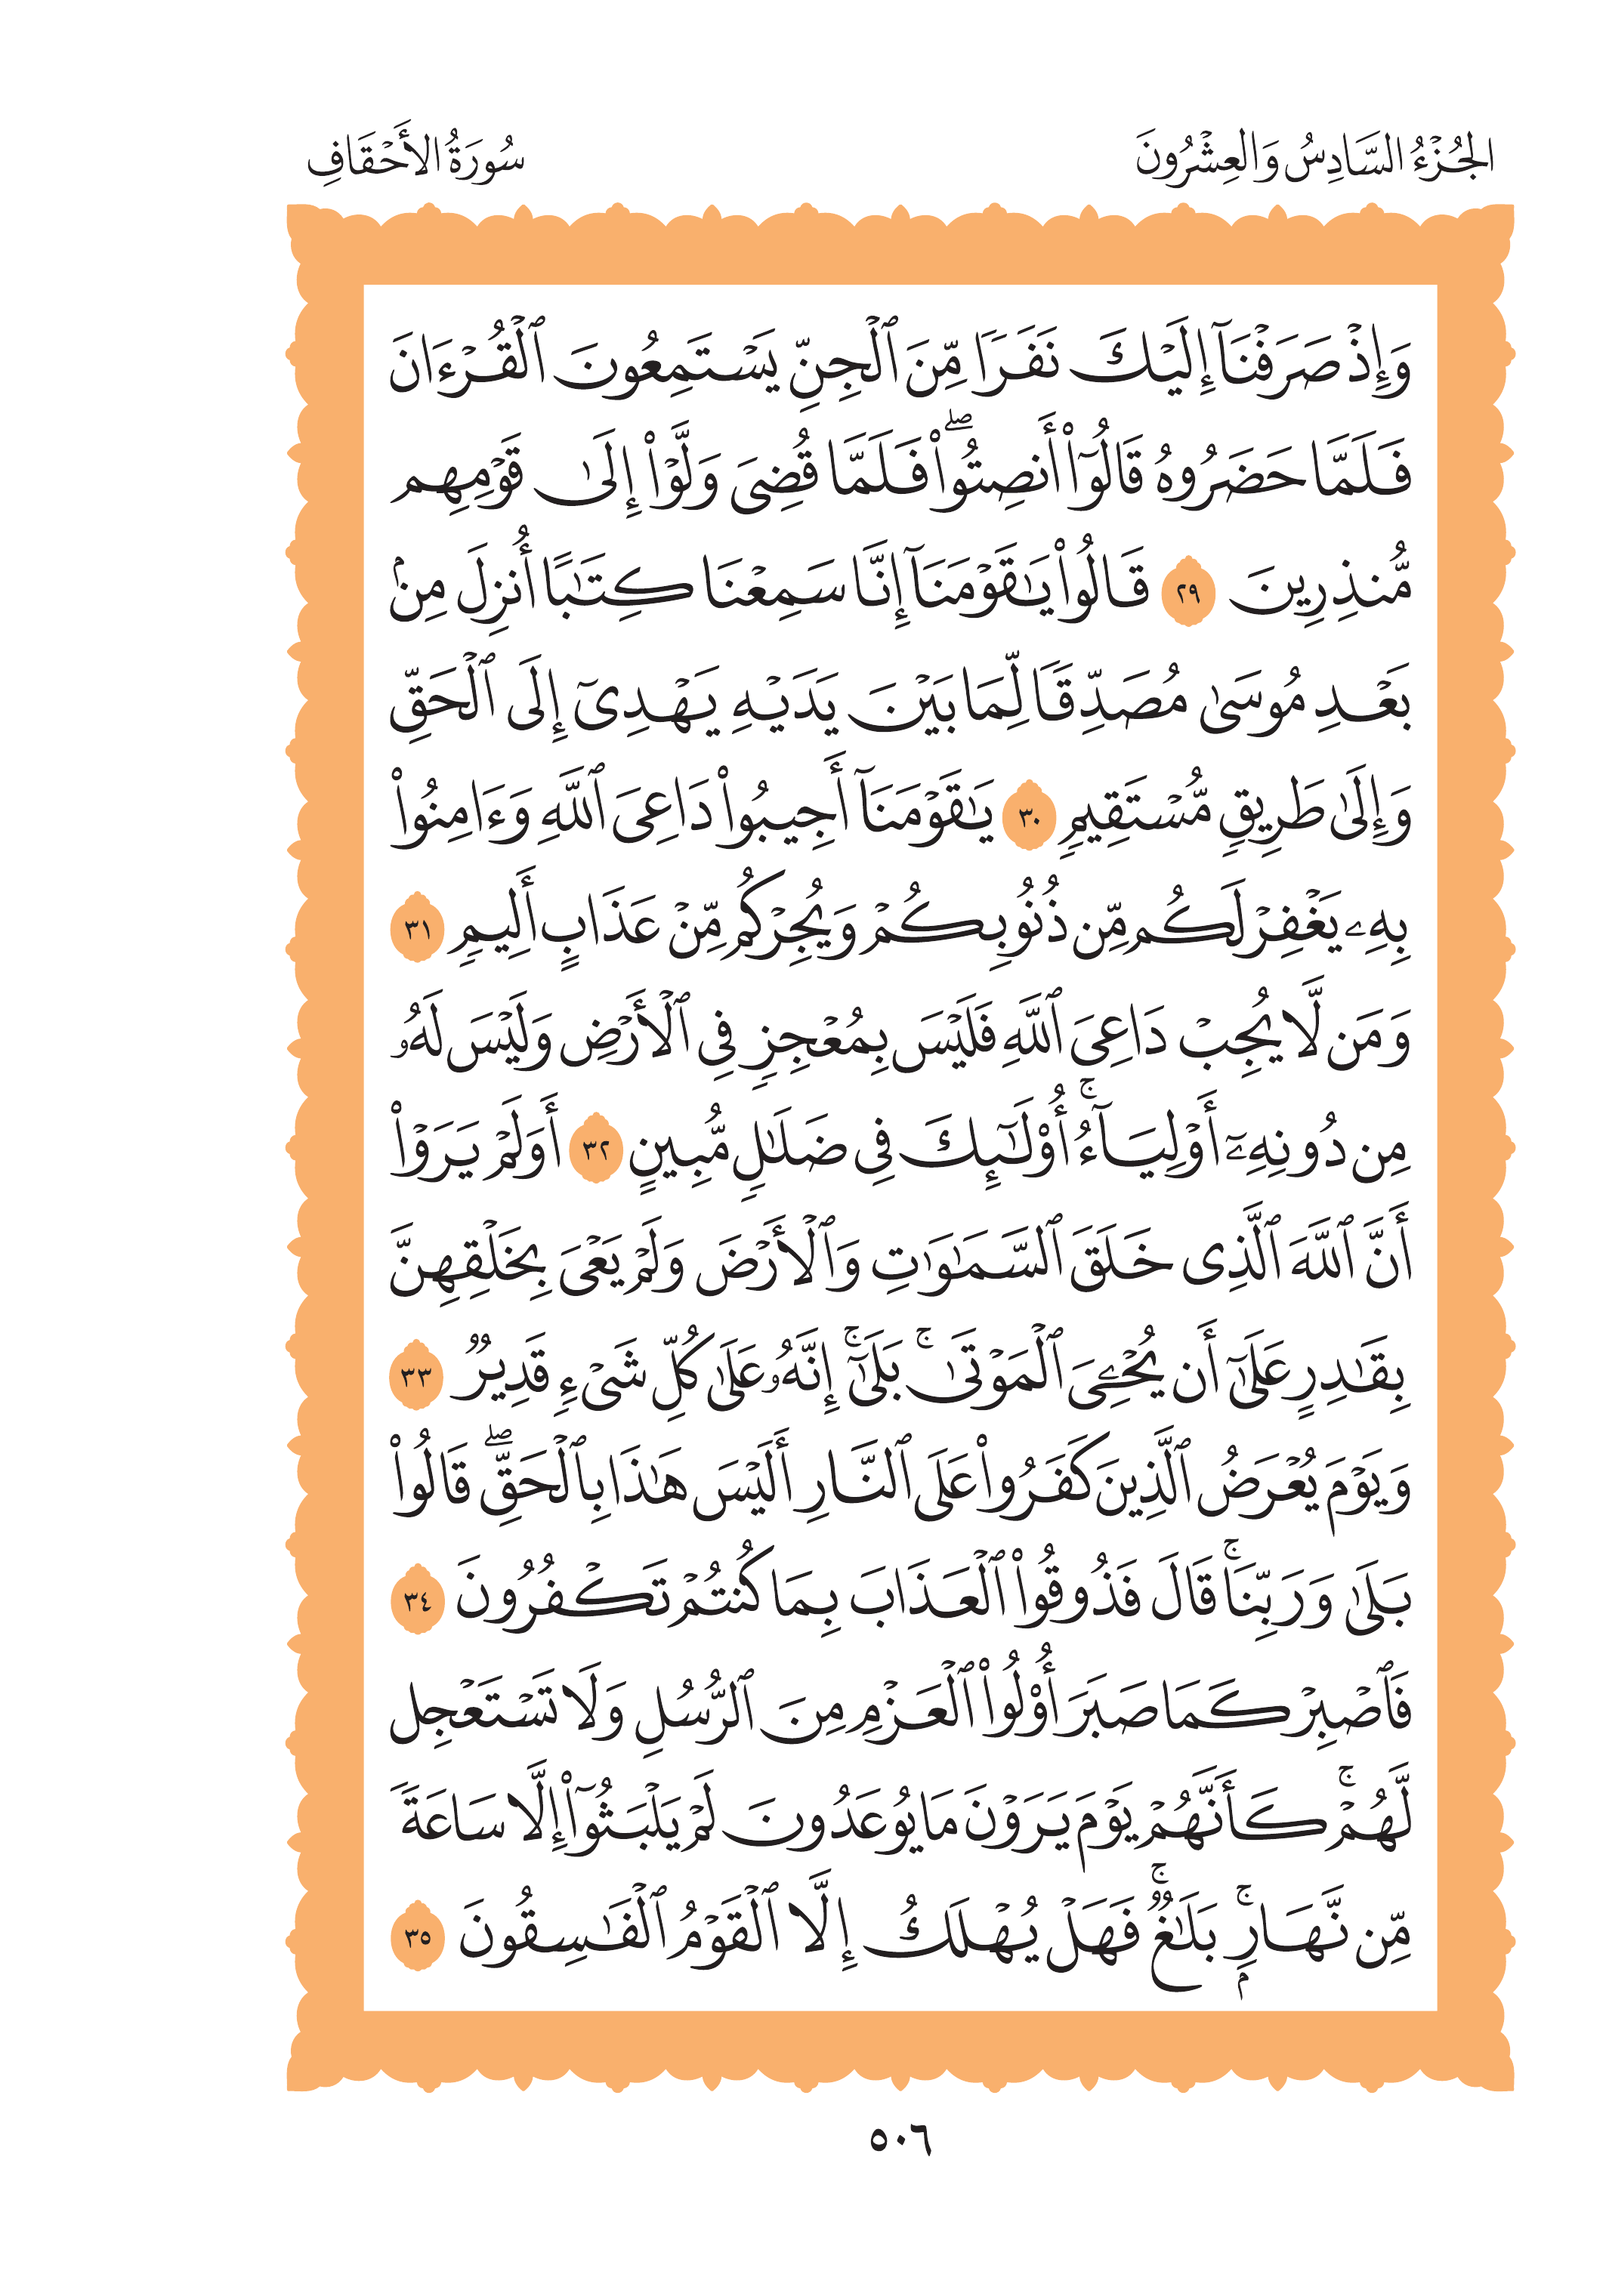 الجُزْءُ السَّادِسُ وَالعِشْرُونَ
سُورَةُ الأَحْقَافِ
وَإِذْ صَرَفْنَآ إِلَيْكَ نَفَرًا مِّنَ ٱلْجِنِّ يَسْتَمِعُونَ ٱلْقُرْءَانَ
فَلَمَّا حَضَرُوهُ قَالُوٓا۟ أَنصِتُوا۟ۖ فَلَمَّا قُضِىَ وَلَّوْا۟ إِلَىٰ قَوْمِهِم
مُّنذِرِينَ ٢٩ قَالُوا۟ يَٰقَوْمَنَآ إِنَّا سَمِعْنَا كِتَٰبًا أُنزِلَ مِنۢ
بَعْدِ مُوسَىٰ مُصَدِّقًا لِّمَا بَيْنَ يَدَيْهِ يَهْدِىٓ إِلَى ٱلْحَقِّ
وَإِلَىٰ طَرِيقٍ مُّسْتَقِيمٍ ٣٠ يَٰقَوْمَنَآ أَجِيبُوا۟ دَاعِىَ ٱللَّهِ وَءَامِنُوا۟
بِهِۦ يَغْفِرْ لَكُم مِّن ذُنُوبِكُمْ وَيُجِرْكُم مِّنْ عَذَابٍ أَلِيمٍ ٣١
وَمَن لَّا يُجِبْ دَاعِىَ ٱللَّهِ فَلَيْسَ بِمُعْجِزٍ فِى ٱلْأَرْضِ وَلَيْسَ لَهُۥ
مِن دُونِهِۦٓ أَوْلِيَآءُۚ أُو۟لَٰٓئِكَ فِى ضَلَٰلٍ مُّبِينٍ ٣٢ أَوَلَمْ يَرَوْا۟
أَنَّ ٱللَّهَ ٱلَّذِى خَلَقَ ٱلسَّمَٰوَٰتِ وَٱلْأَرْضَ وَلَمْ يَعْىَ بِخَلْقِهِنَّ
بِقَٰدِرٍ عَلَىٰٓ أَن يُحْۦِىَ ٱلْمَوْتَىٰۚ بَلَىٰٓۚ إِنَّهُۥ عَلَىٰ كُلِّ شَىْءٍ قَدِيرٌ ٣٣
وَيَوْمَ يُعْرَضُ ٱلَّذِينَ كَفَرُوا۟ عَلَى ٱلنَّارِ أَلَيْسَ هَٰذَا بِٱلْحَقِّۖ قَالُوا۟
بَلَىٰ وَرَبِّنَاۚ قَالَ فَذُوقُوا۟ ٱلْعَذَابَ بِمَا كُنتُمْ تَكْفُرُونَ ٣٤
فَٱصْبِرْ كَمَا صَبَرَ أُو۟لُوا۟ ٱلْعَزْمِ مِنَ ٱلرُّسُلِ وَلَا تَسْتَعْجِل
لَّهُمْۚ كَأَنَّهُمْ يَوْمَ يَرَوْنَ مَا يُوعَدُونَ لَمْ يَلْبَثُوٓا۟ إِلَّا سَاعَةً
مِّن نَّهَارٍۭۚ بَلَٰغٌۚ فَهَلْ يُهْلَكُ إِلَّا ٱلْقَوْمُ ٱلْفَٰسِقُونَ ٣٥
٥٠٦